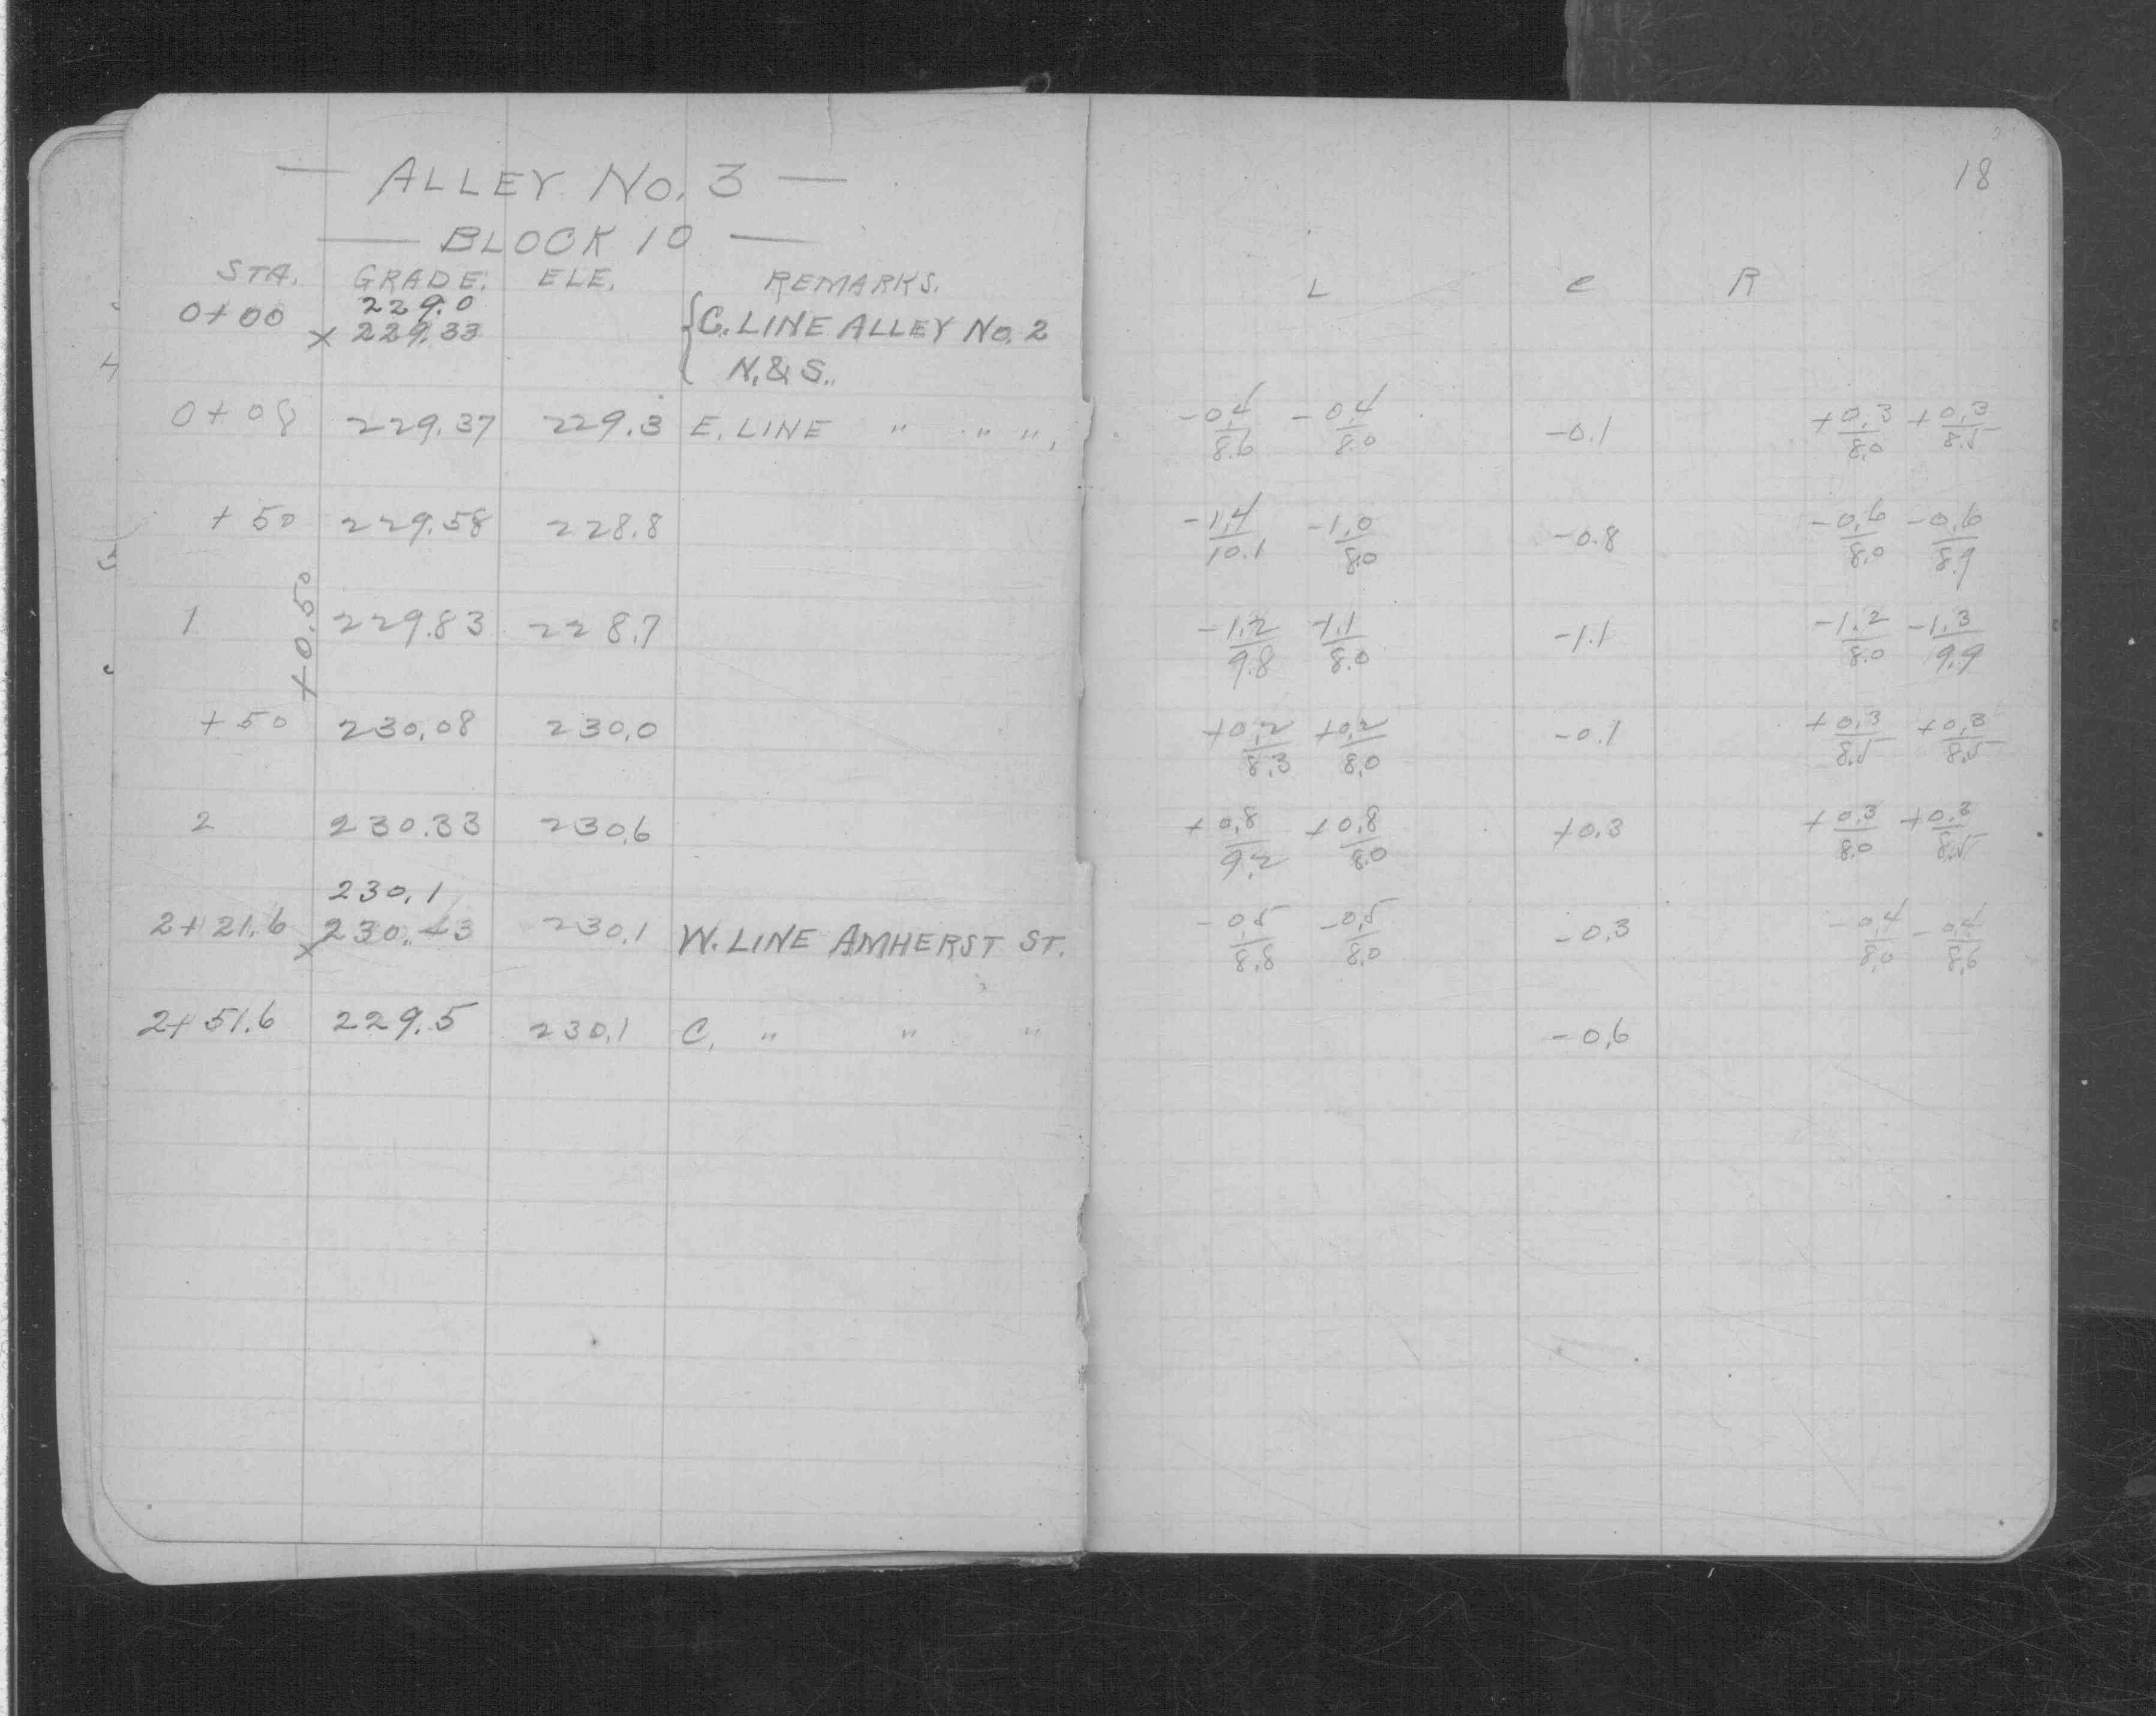 — ALLEY No. 3 —
— BLOCK 10 —
STA. GRADE. ELE. REMARKS.
229.0
0+00 x 229.33 { C. LINE ALLEY No. 2
N. & S.
0+08 229.37 229.3 E. LINE " " ".
+50 229.58 228.8
1 229.83 228.7
+0.50
+50 230.08 230.0
2 230.33 230.6
230.1
2+21.6 x 230.43 230.1 W. LINE AMHERST ST.
2+51.6 229.5 230.1 C. " " "
18
L C R
-0.4/8.6 -0.4/8.0 -0.1 +0.3/8.0 +0.3/8.5
-1.4/10.1 -1.0/8.0 -0.8 -0.6/8.0 -0.6/8.9
-1.2/9.8 -1.1/8.0 -1.1 -1.2/8.0 -1.3/9.9
+0.2/8.3 +0.2/8.0 -0.1 +0.3/8.5 +0.3/8.5
+0.8/9.2 +0.8/8.0 +0.3 +0.3/8.0 +0.3/8.5
-0.5/8.8 -0.5/8.0 -0.3 -0.4/8.0 -0.4/8.6
-0.6